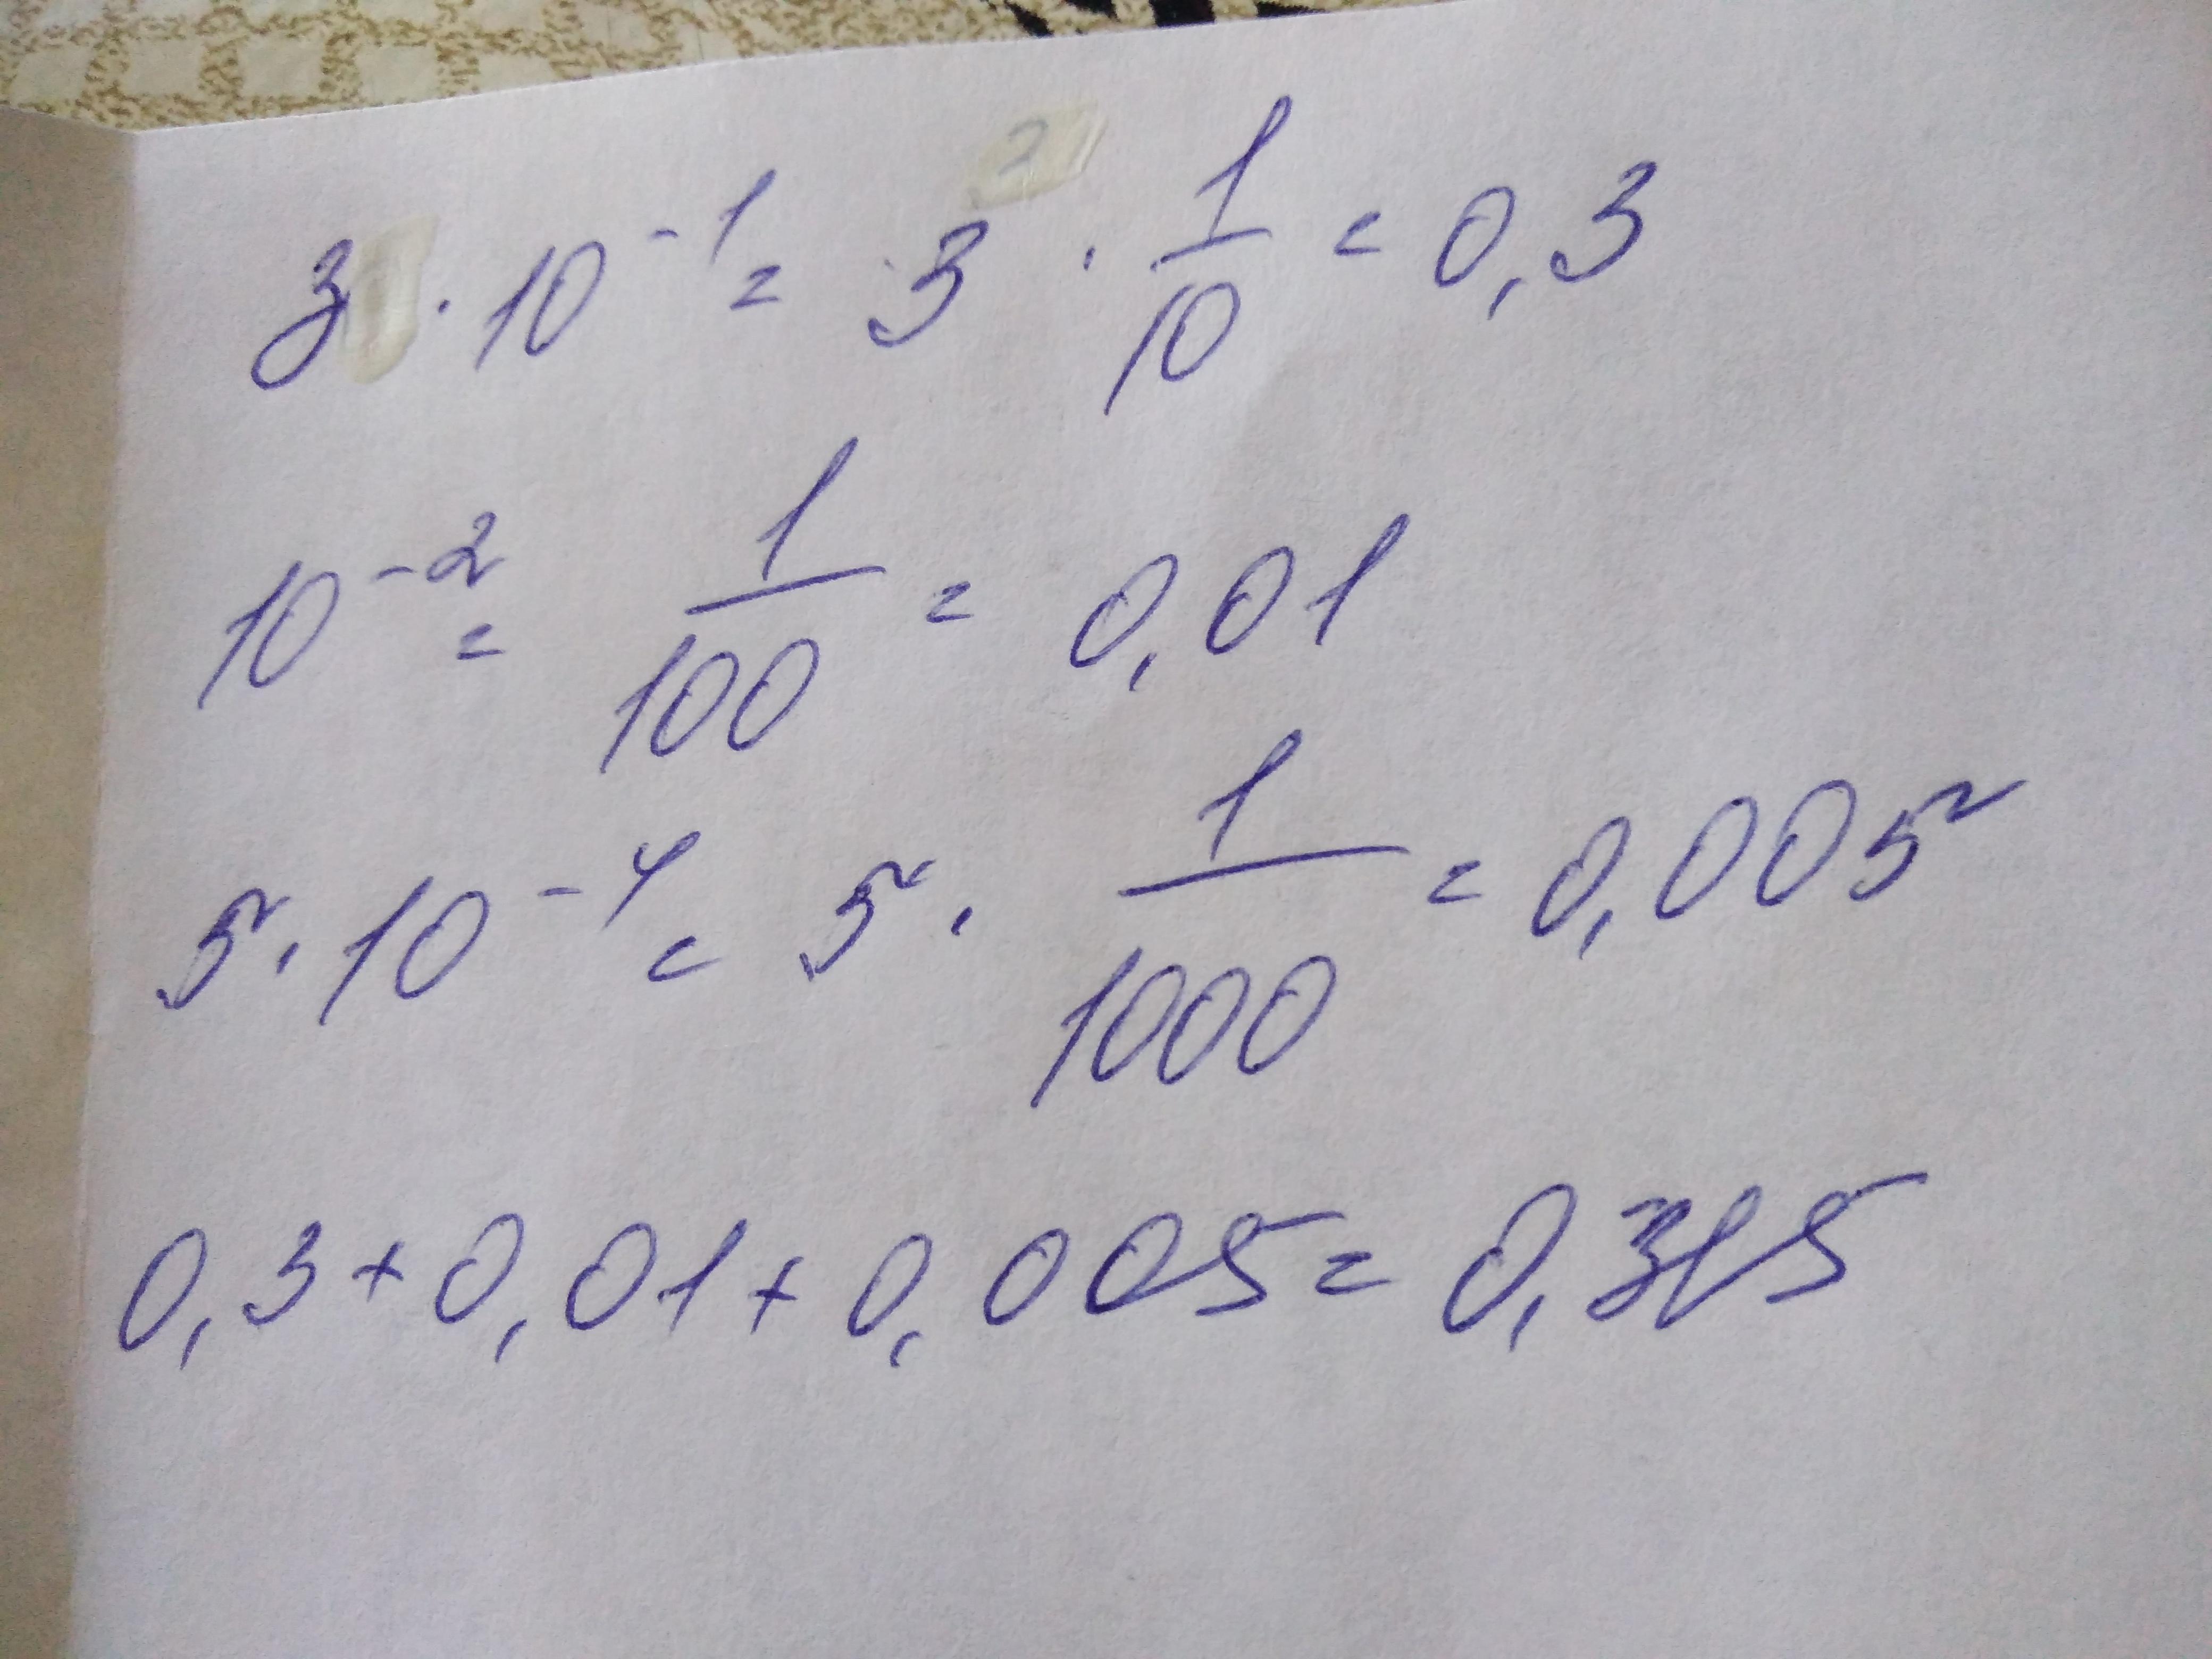 3 · 10⁻¹ = 3 · 1/10 = 0,3
10⁻² = 1/100 = 0,01
5 · 10⁻⁴ = 5 · 1/1000 = 0,005
0,3 + 0,01 + 0,005 = 0,315